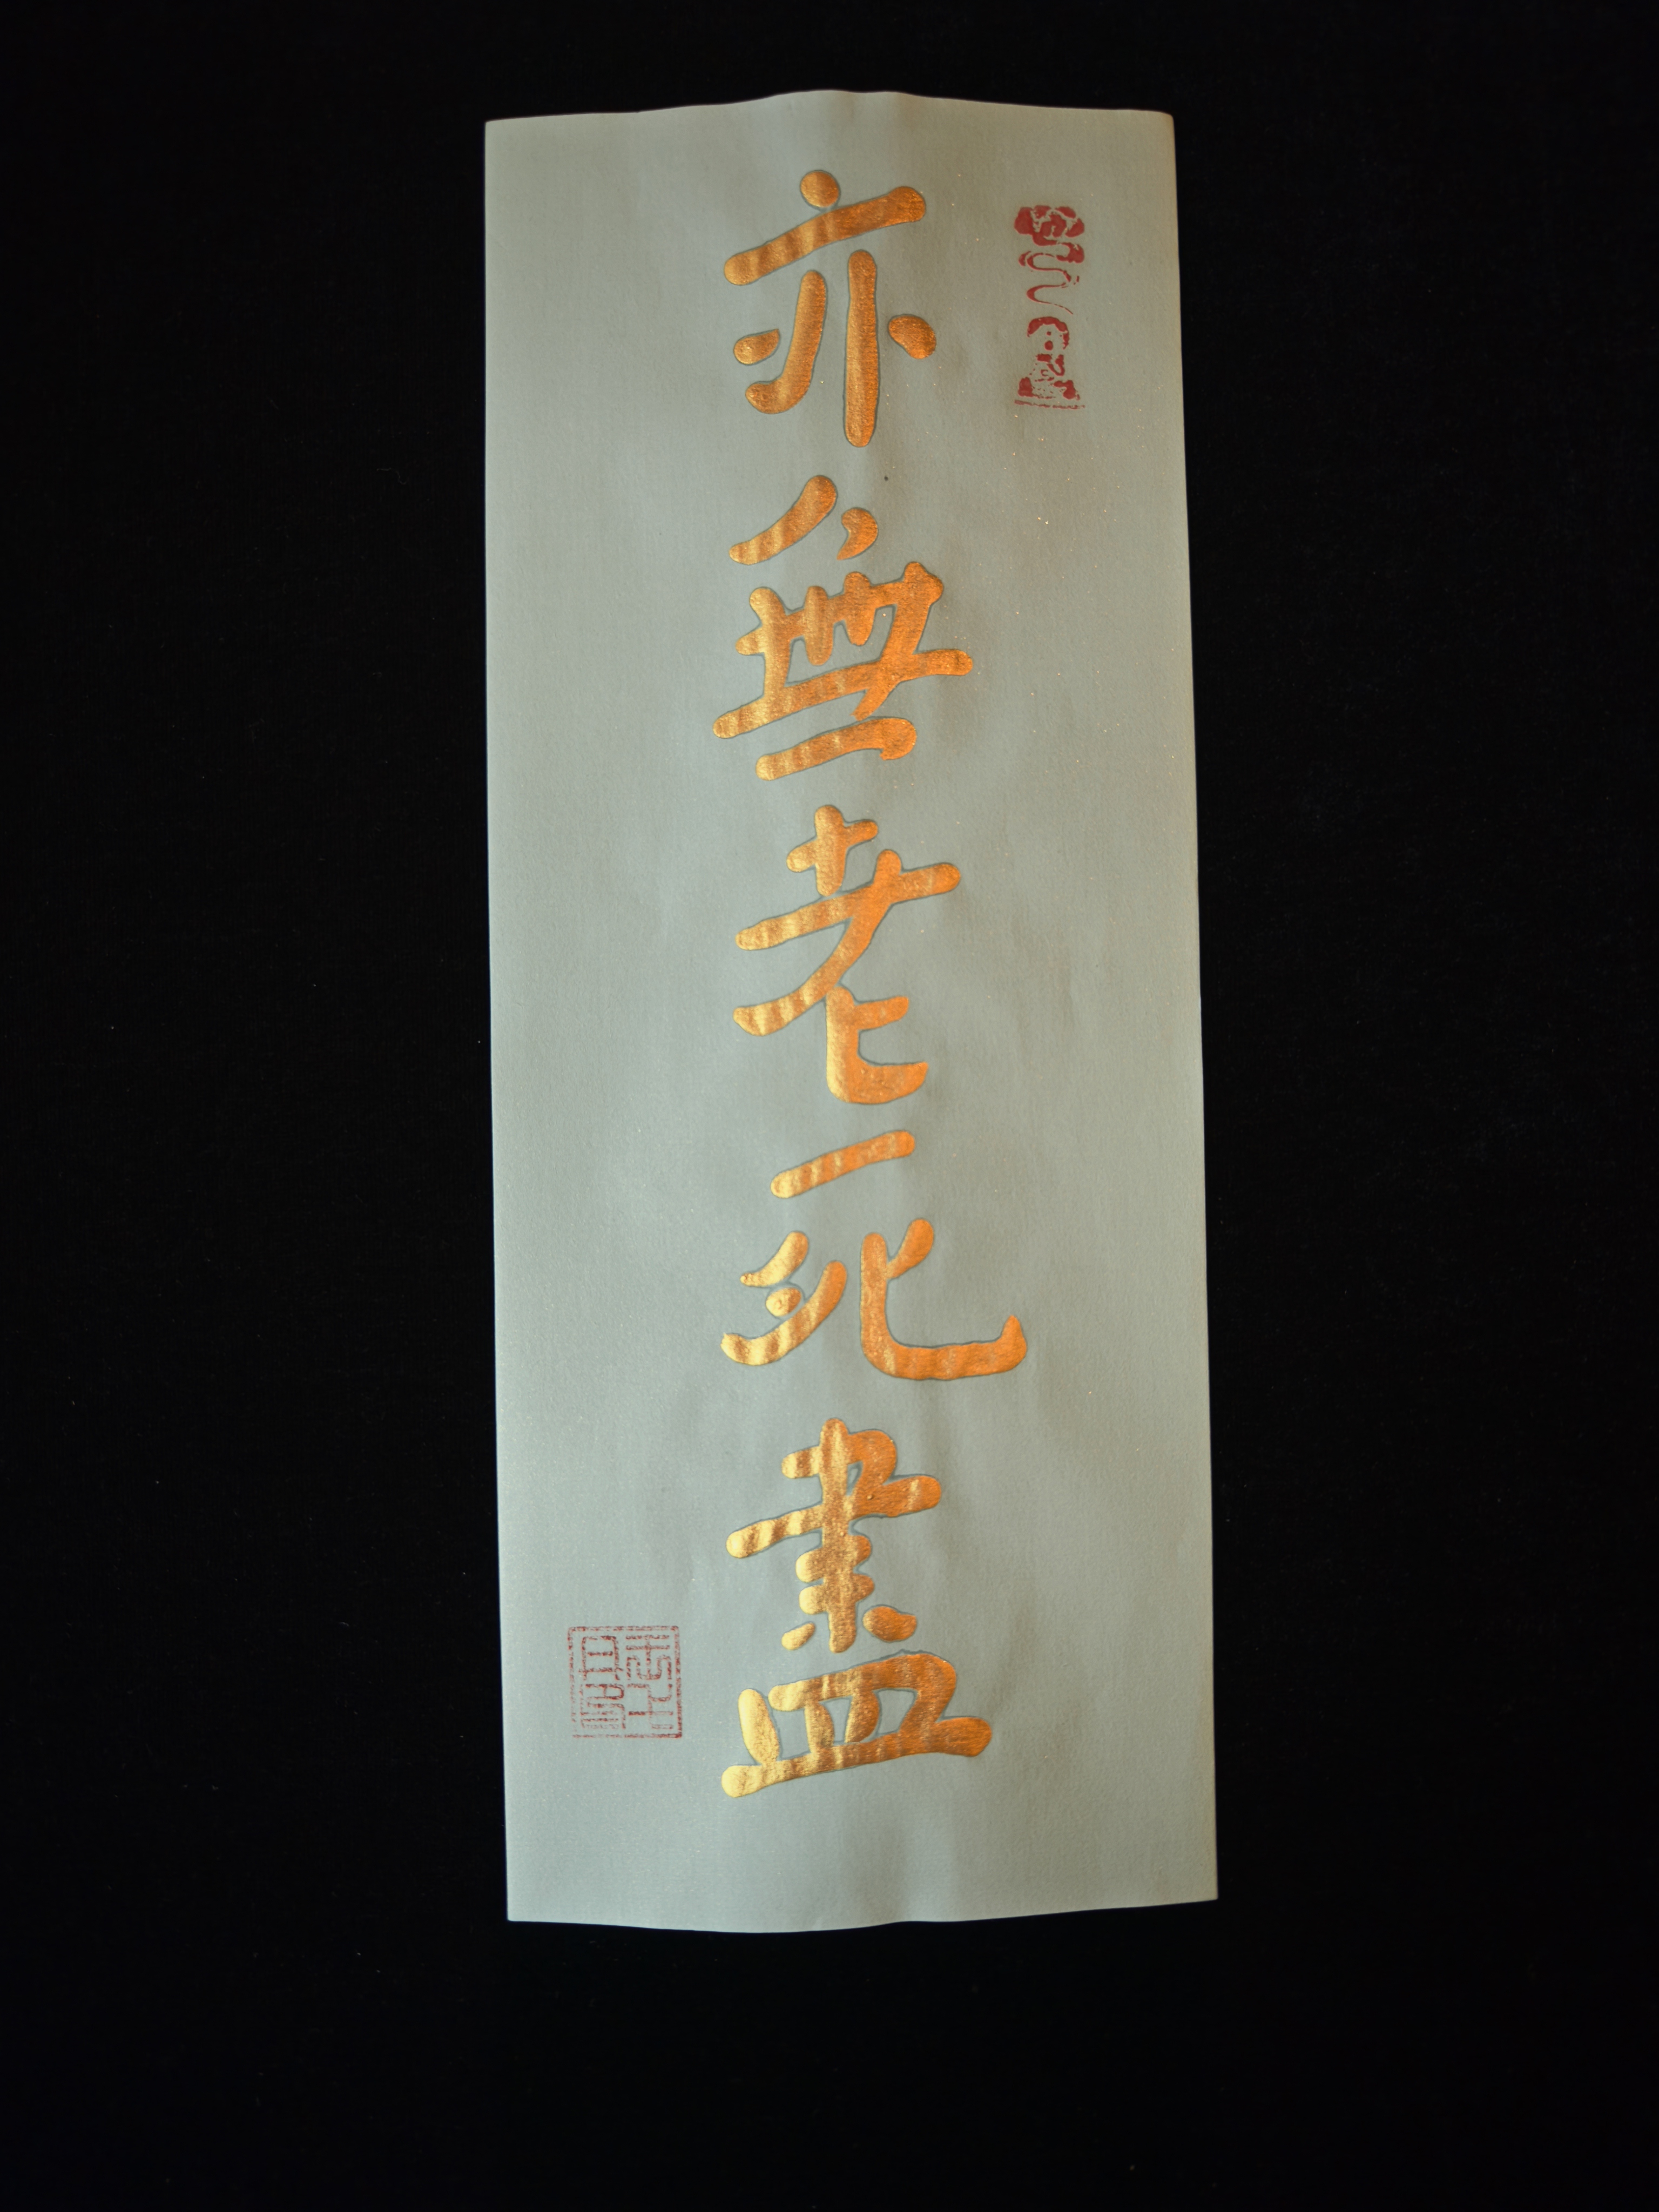 亦無老死盡